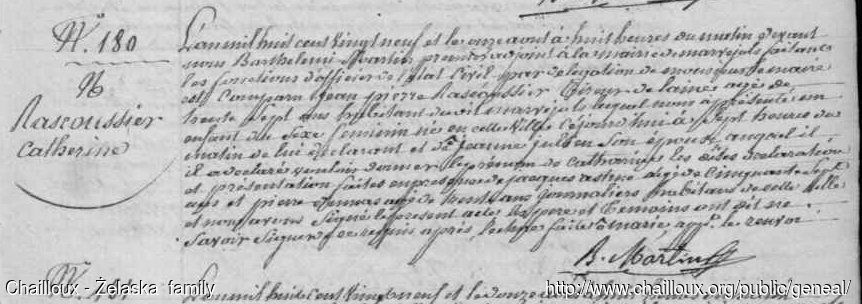 N.° 180
N
Rascoussier
Catherine
L'an mil huit cent vingt neuf et le onze aout à huit heures du matin devant
nous Barthelemi Martin premier adjoint à la mairie de marvejols faisant
les fonctions d'officier de l'état Civil par délégation de monsieur le maire
est Comparu jean pierre Rascoussier tireur de laines agé de
trente sept ans habitant de cette ville marvejols lequel nous a présenté un
enfant du sexe feminin né en cette Ville Cejourd'hui à sept heures du
matin de lui déclarant et de jeanne son épouse auquel il
a declaré vouloir donner le prénom de Catherine les dites declaration
et présentation faites en présence de jacques agé de Cinquante sept
ans et pierre agé de trente ans journaliers habitans de cette Ville
et nous avons signé le present acte les pere et temoins ont dit ne
savoir signer de ce requis après lecture faite
B. Martin
N.° 181
L'an mil huit cent vingt neuf et le douze aout
Chailloux - Żelaska family
http://www.chailloux.org/public/geneal/